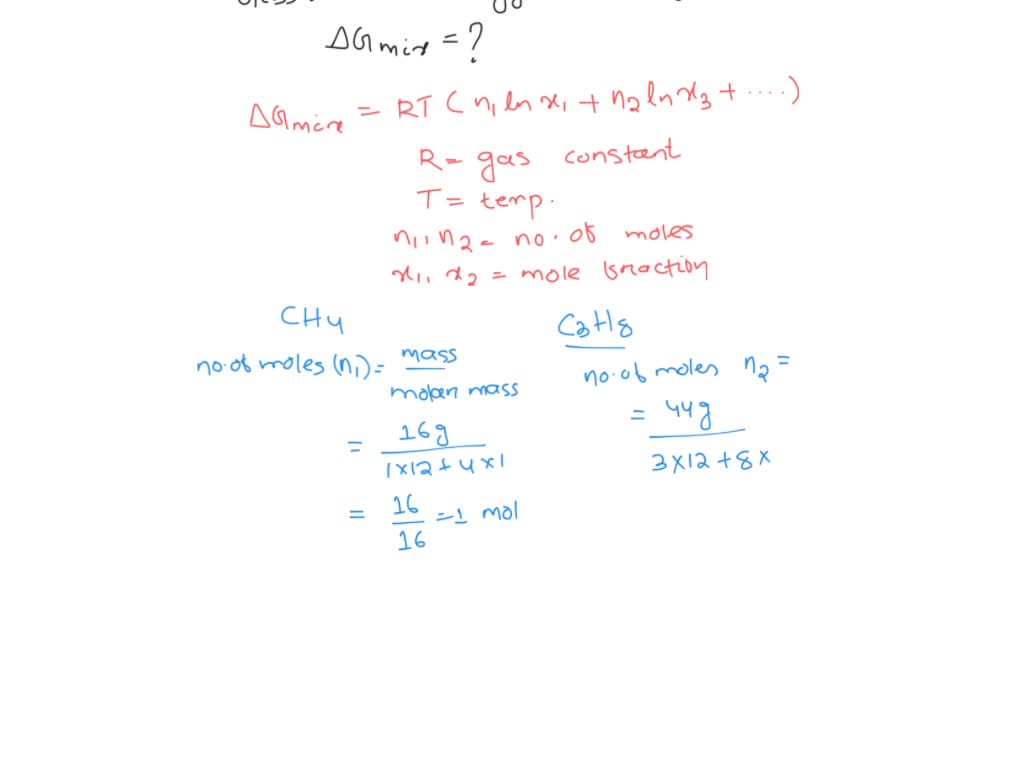 ΔGmix = ?
ΔGmix = RT (n₁ ln x₁ + n₂ ln x₃ + ....)
R = gas constant
T = temp.
n₁, n₂ = no. of moles
x₁, x₂ = mole fraction
CH₄
no. of moles (n₁) = mass / molar mass
= 16g / 1×12 + 4×1
= 16/16 = 1 mol
C₃H₈
no. of moles n₂ =
= 44g / 3×12 + 8×